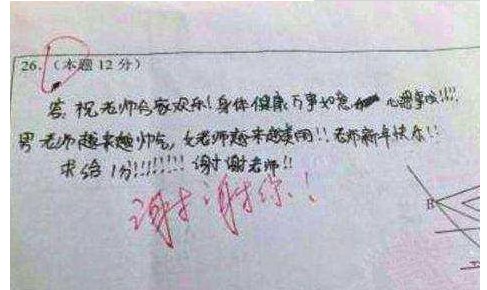 26.（本题 12 分）
答：祝老师合家欢乐！身体健康 万事如意 心想事成!!!!
男老师越来越帅气，女老师越来越美丽!! 老师新年快乐!!
求给 1分!!!!!!!! 谢谢老师!!
谢谢你!
B